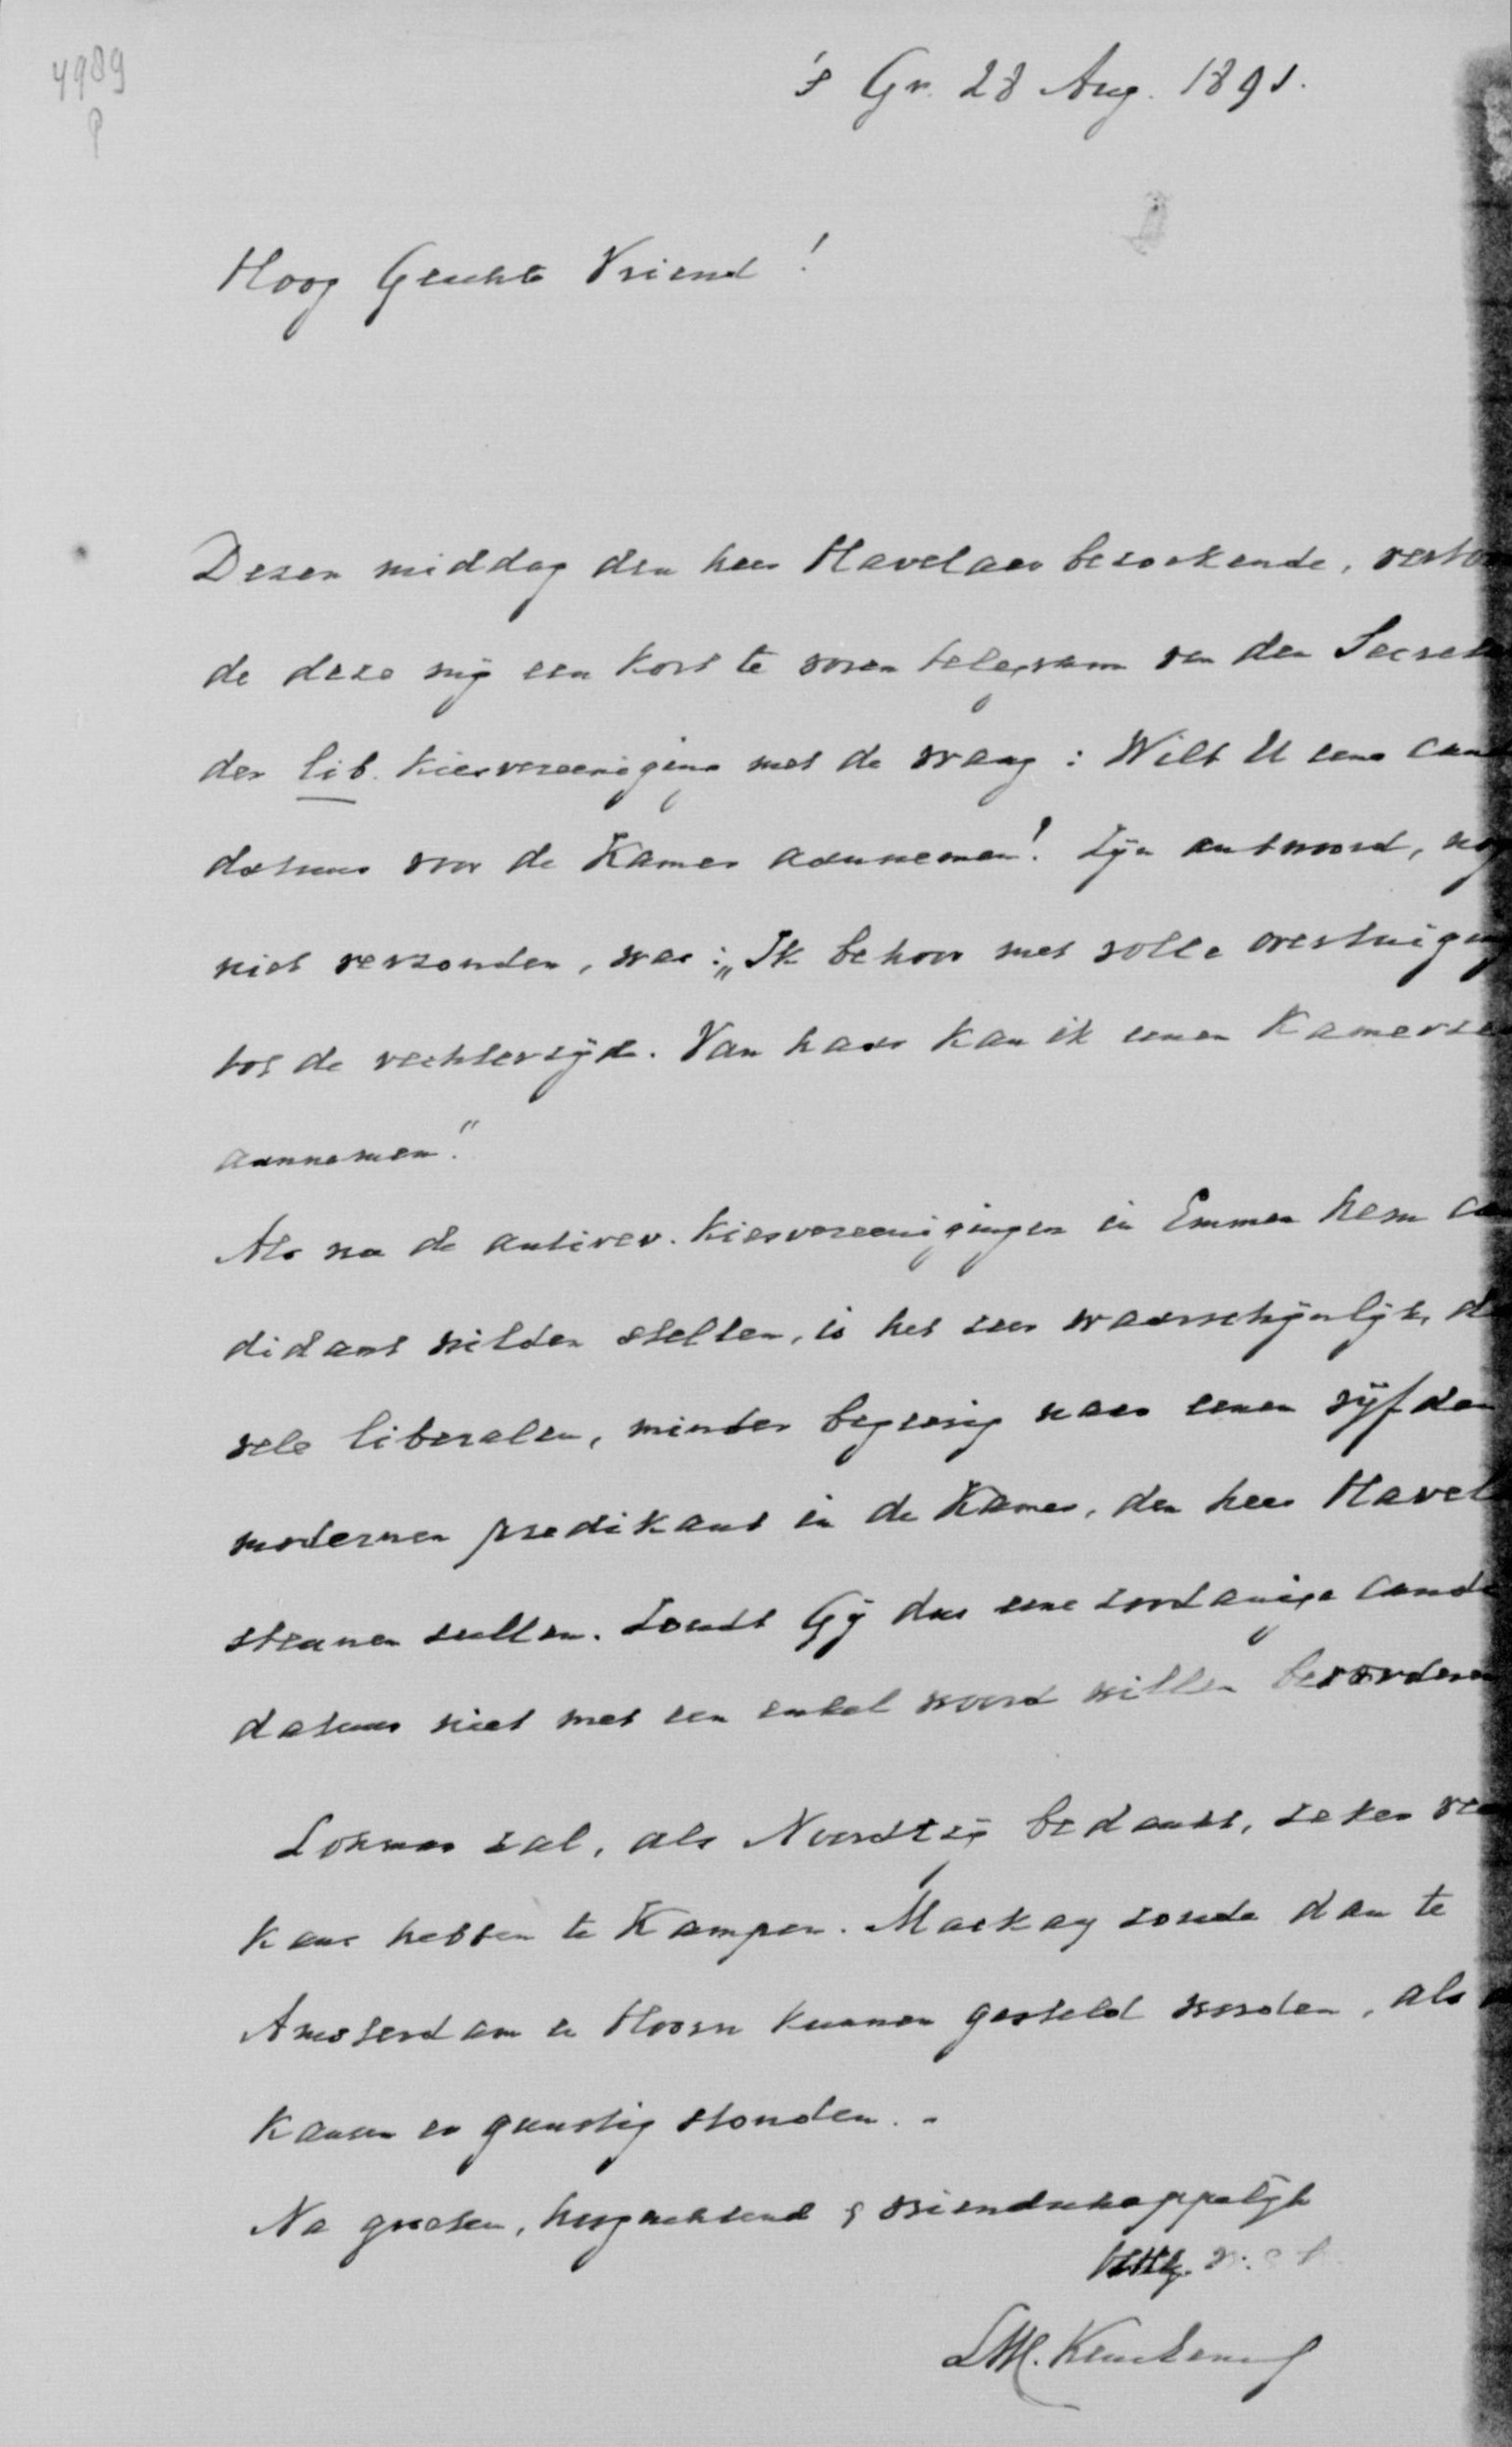 4989
P
's Gr. 28 Aug. 1891.
Hoog Geachte Vriend!
Dezen middag den heer Havelaar bezoekende, verto
de deze mij een kort te voren telegram van den Secreta
der lib. kiesvereeniging met de vraag: Wilt U eene can
datuur voor de Kamer aannemen! Zijn antwoord, nog
niet verzonden, was: „Ik behoor met volle overtuiging
tot de rechterzijde. Van haar kan ik eenen Kamerze
aannemen."
Als nu de antirev. kiesvereenigingen in Emmen hem ca
didaat wilden stellen, is het zeer waarschijnlijk, d
vele liberalen, minder begeerig naar eenen vijfden
modernen predikant in de Kamer, den heer Havel
steunen zullen. Zoudt Gij dus eene zoodanige candi
datuur niet met een enkel woord willen bevorderen
Lohman zal, als Noordtzij bedankt, zeker vee
kans hebben te Kampen. Mackay zoude dan te
Amsterdam en Hoorn kunnen gesteld worden, als
kansen er gunstig stonden. -
Na groeten, hoogachtend & vriendschappelijk
LWC. Keuchenius